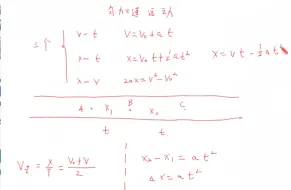 匀加速运动
三个
v-t  v=v₀+at
x-t  x=v₀t+½at²  x=vt-½at²
x-v  2ax=v²-v₀²
A  x₁  B  x₂  C
t  t
x/t = (v₀+v)/2
x₂-x₁=at²
Δx=at²